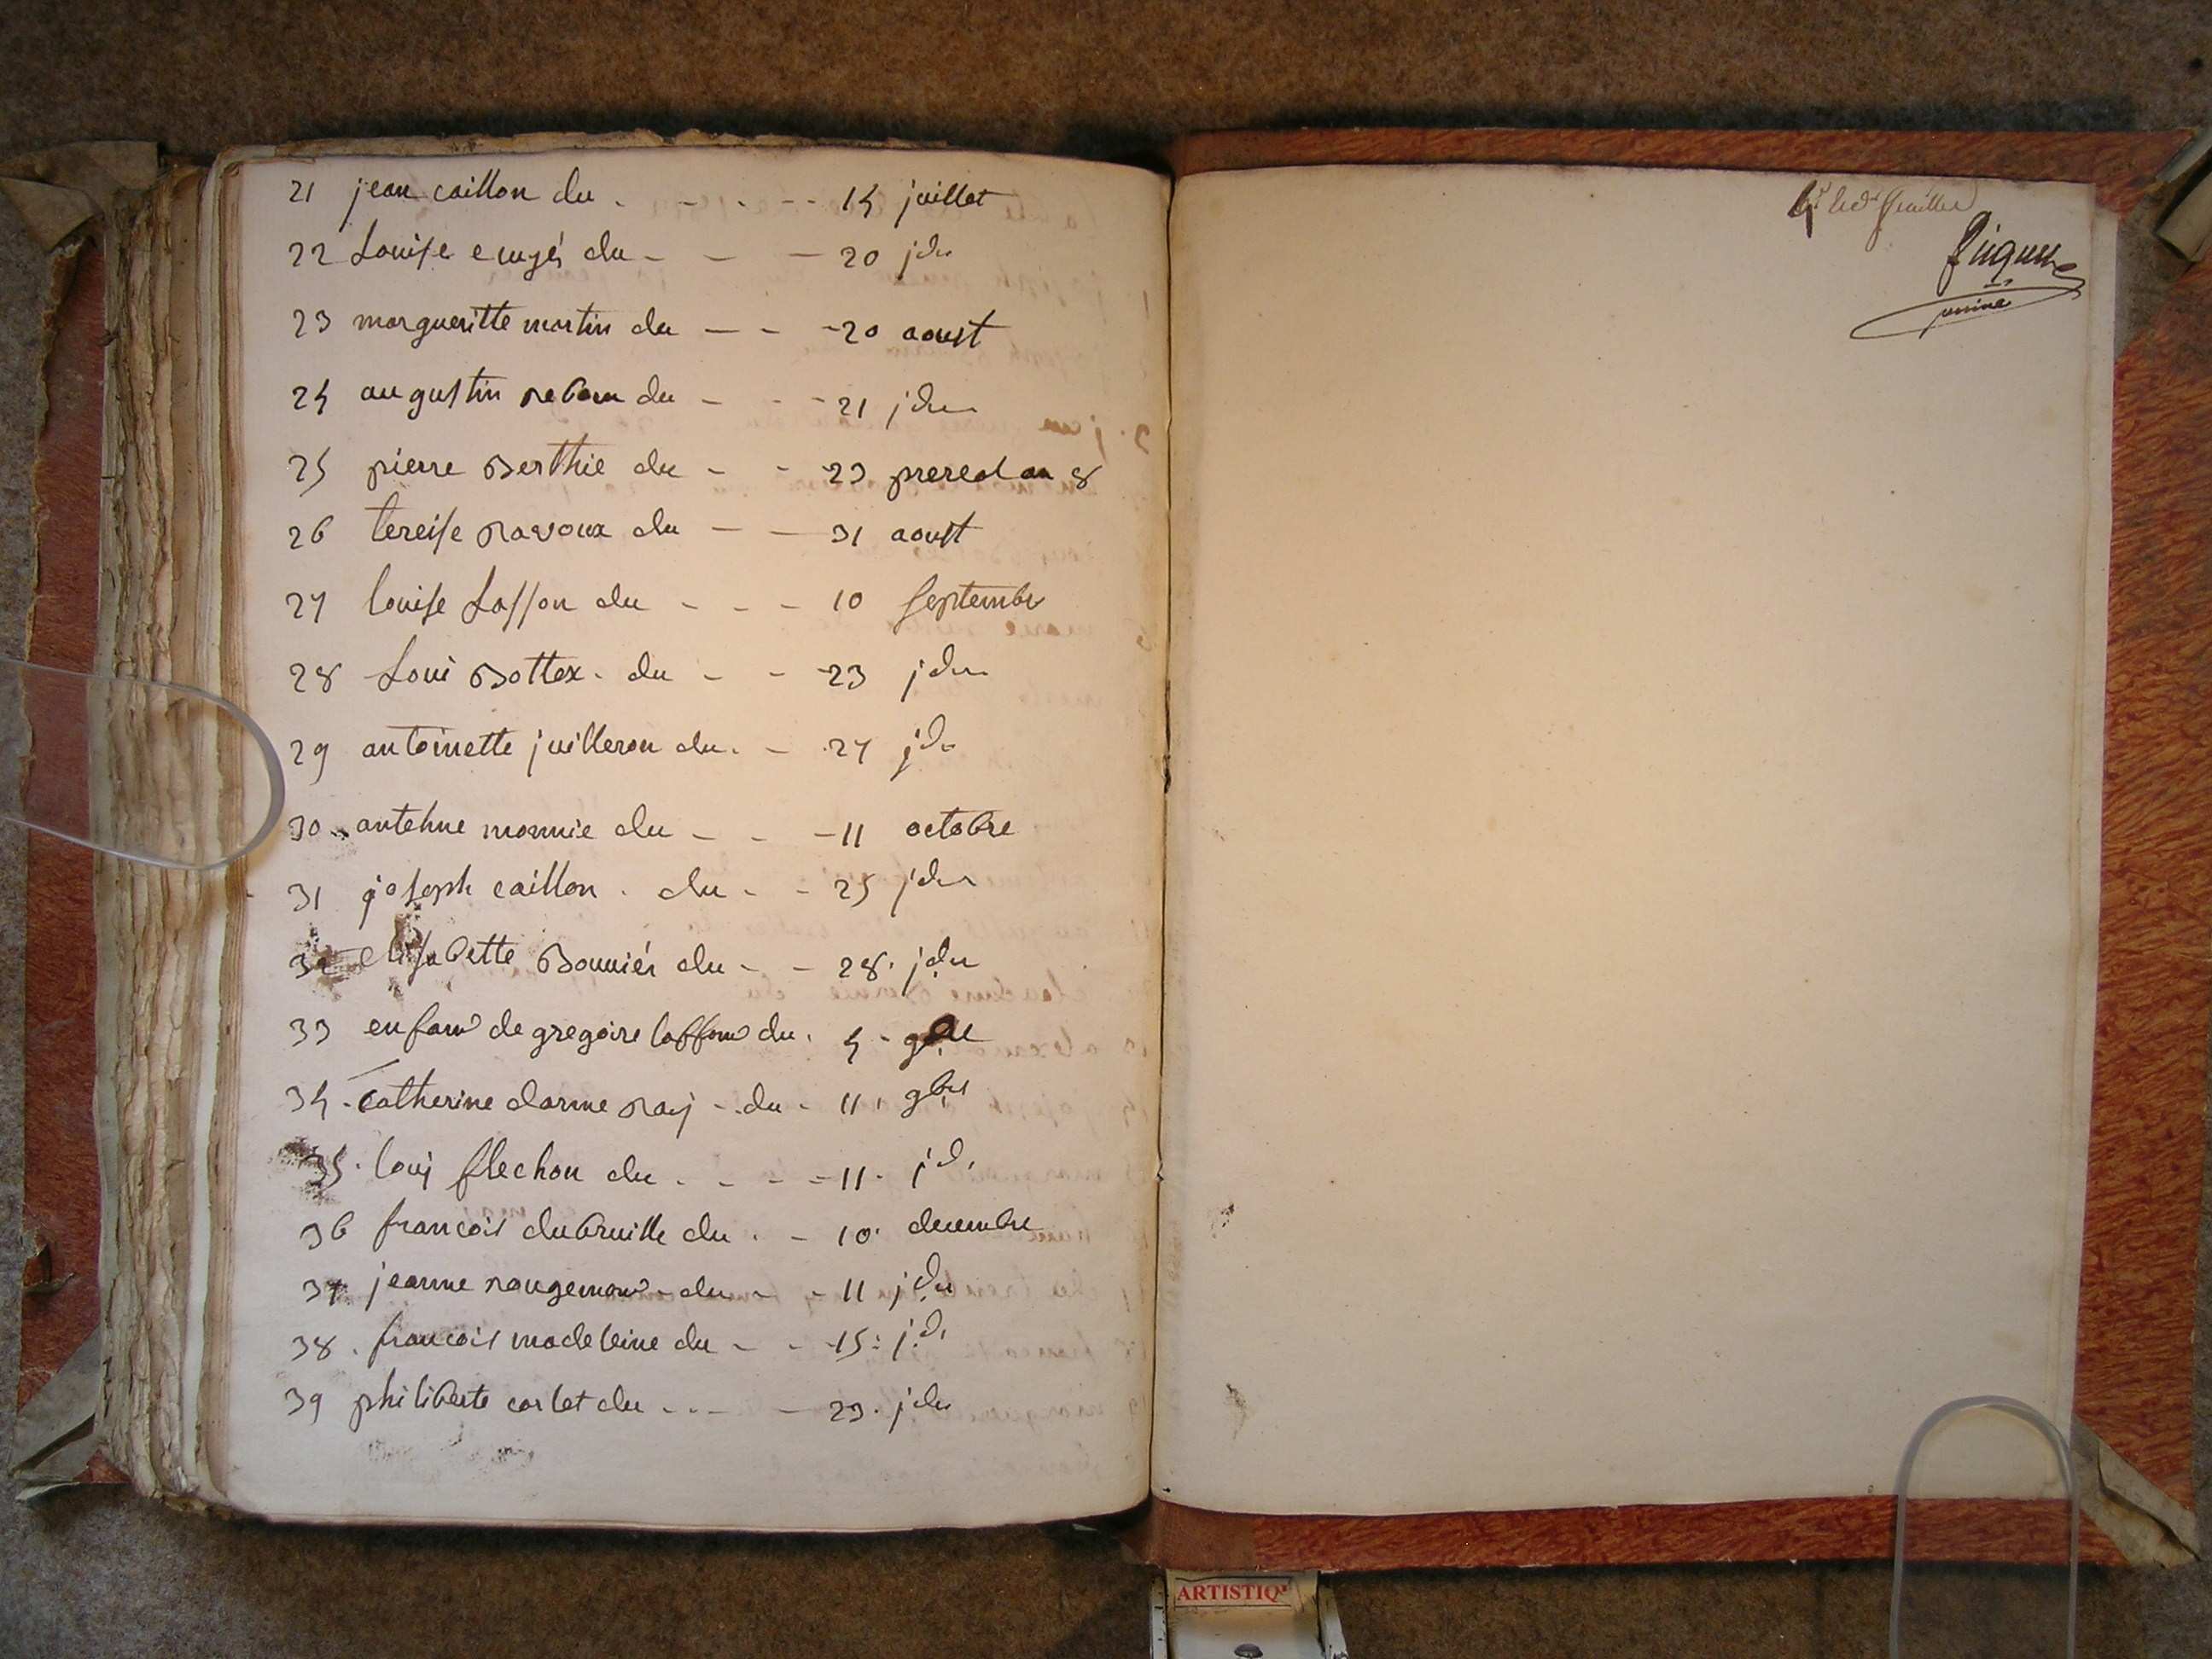 21 jean caillon du . - . - - 14 juillet
22 Louise eugé du - - - 20 jdu
23 margueritte martin du - - - 20 aoust
24 augustin du - - - 21 jdu
25 pierre Berthie du - - 23 prereal an 8
26 tereise Ravoux du - - 31 aoust
27 louise Lasson du - - - 10 septembre
28 Loui Bottex . du - - 23 jdu
29 antoinette juilleron du . - 27 jdu
30 antehne monnie du - - - 11 octobre
31 joseph caillon . du - - 25 jdu
32 elisabette Bonnier du - - 28 . jdu
33 enfant de gregoire laffont du . 4 -
34 . catherine darme Ray - du - 11 . 9bre
35 . louj flechon du . - - - 11 . jd.
36 francois dubruille du . - 10 . decembre
37 jeanne rougemont - du - - 11 jdu
38 . francois madeleine du - - 15 : jd.
39 philiberte carlet du - - - - 23 . jdu
feuillet
ARTISTIQ